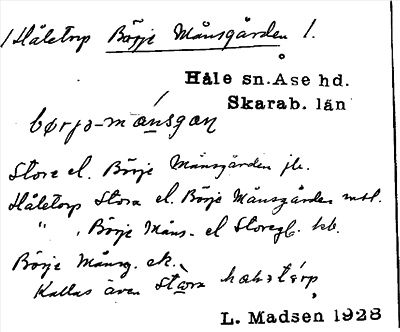 /Håletorp Börje Månsgården /.
Håle sn. Åse hd.
Skarab. län
börjə-månsgan
Store el. Börje Månsgården jb.
Håletorp Stora el. Börje Månsgården mtl.
" , Börje Måns- el Storeg. kb.
Börje Månsg. ek.
Kallas även stora halstərp
L. Madsen 1928